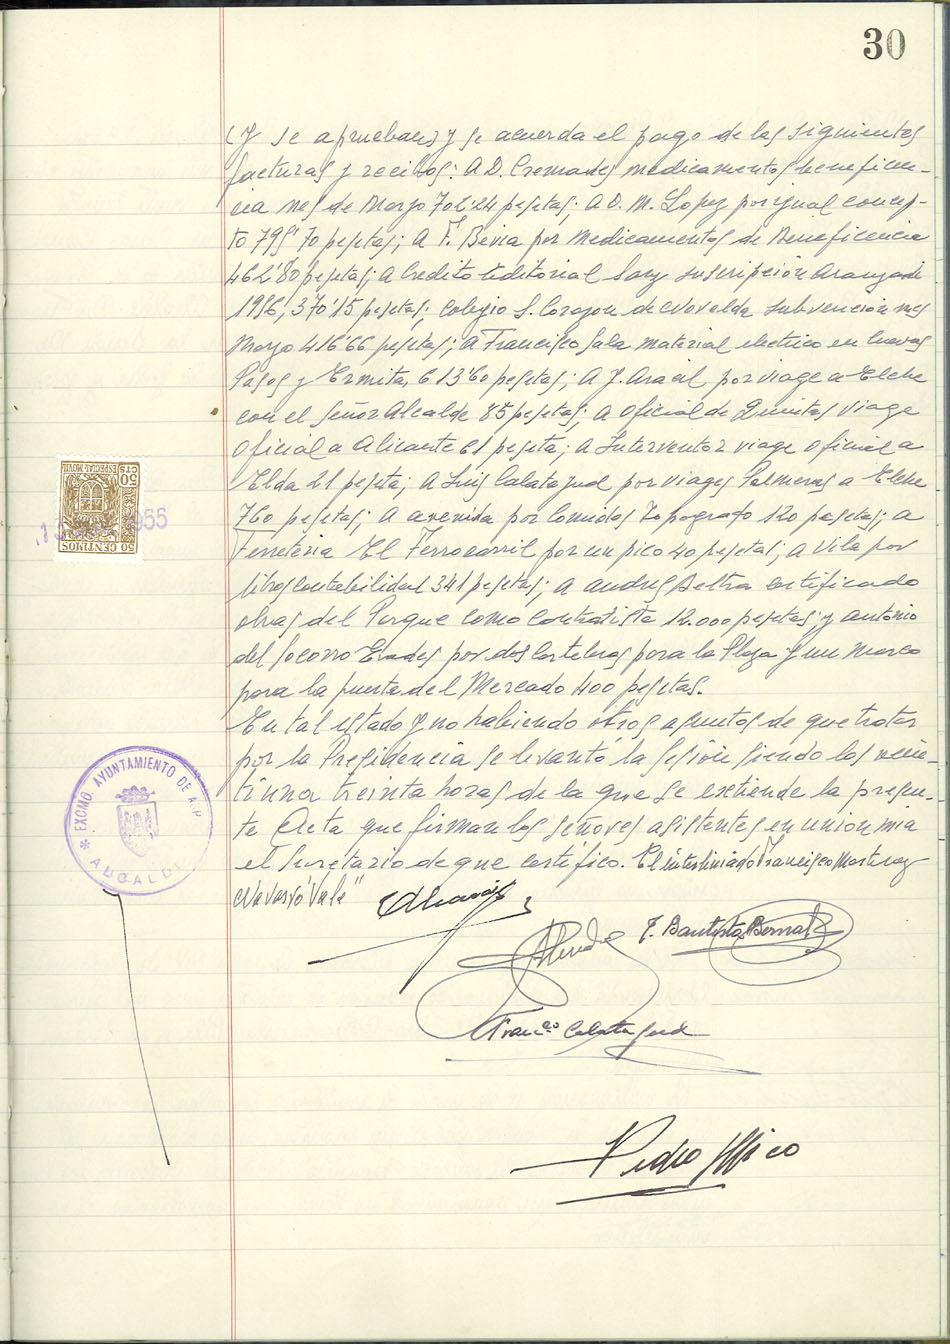 30
(Y se aprueban) y se acuerda el pago de las siguientes
facturas y recibos: A D. Cremades medicamentos beneficen-
cia mes de Marzo 702'24 pesetas; a D. M. Lopez por igual concep-
to 795'70 pesetas; A F. Bevia por Medicamentos de Beneficencia
462'80 pesetas; a Credito Editorial suscripción Aranzadi
1956, 370'15 pesetas; Colegio S. Corazon de Novelda subvencion mes
Marzo 416'66 pesetas; a Francisco Sala material electrico en Cuevas
Pasos y Ermita, 613'60 pesetas; A J. Aracil por viage a Elche
con el Señor Alcalde 85 pesetas; a Oficial de Quintas viage
Oficial a Alicante 61 peseta; a Interventor viage Oficial a
Elda 21 peseta; a Luis Calatayud por viages Palmeras a Elche
760 pesetas; a por Comidas Topografo 120 pesetas; a
Ferreteria El Ferrocarril por un pico 40 pesetas, a Vila por
libros contabilidad 341 pesetas; a Andres Beltra certificado
obras del Parque como Contratista 12.000 pesetas; y antonio
del Socorro por dos Carteleras para la Plaza y un Marco
para la puerta del Mercado 400 pesetas.
En tal estado y no habiendo otros asuntos de que tratar
por la Presidencia se levantó la sesión siendo las vein-
tiuna treinta horas de la que se extiende la presen-
te Acta que firman los señores asistentes en union mia
el Secretario de que certifico. El Francisco Martinez
Navarro "Vale"
J. Bautista Bernal
Franco Calatayud
Pedro
ESPECIAL MOVIL
50 CTS
50 CENTIMOS
1955
* EXCMO. AYUNTAMIENTO DE ASP